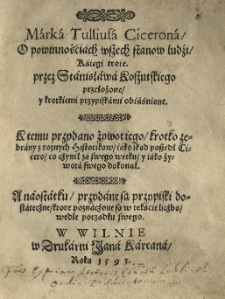 Márká Tulliusá Ciceroná/
O powinnośćiách wszech stanow ludźi/
Kśięgi troie.
przez Stanisláwá Koszutskiego
przełożone/
y krotkiemi przypiskámi obiáśnione.
K temu przydano żywot iego/ krotko ze-
brány z roznych Historikow/ iáko skąd poszedł Ci-
cero/ co czynił zá swego wieku/ y iáko ży-
wotá swego dokonał.
A náostátku/ przydáne są przypiski do-
státeczne/ ktore poznáczone są w tekśćie liczbą/
wedle porządku swego.
W WILNIE
w Drukárni Janá Kárcaná/
Roku 1593.